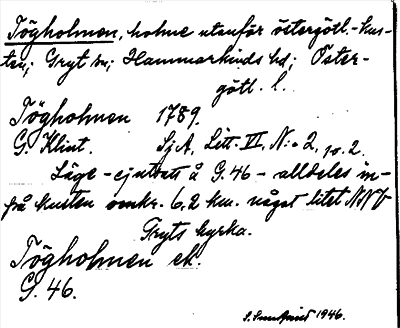 Tögholmen, holme utanför östergötl.-kus-
ten; Gryt sn; Hammarkinds hd; Öster-
götl. l.
Tögholmen 1789.
G. Klint. SjA, Litt. VI, N:o 2, 2.
Läge - ej utsatt å G. 46 - alldeles in-
på kusten omkr. 6,2 km. något litet NNV
Gryts kyrka.
Tögholmen ek.
G. 46.
1946.